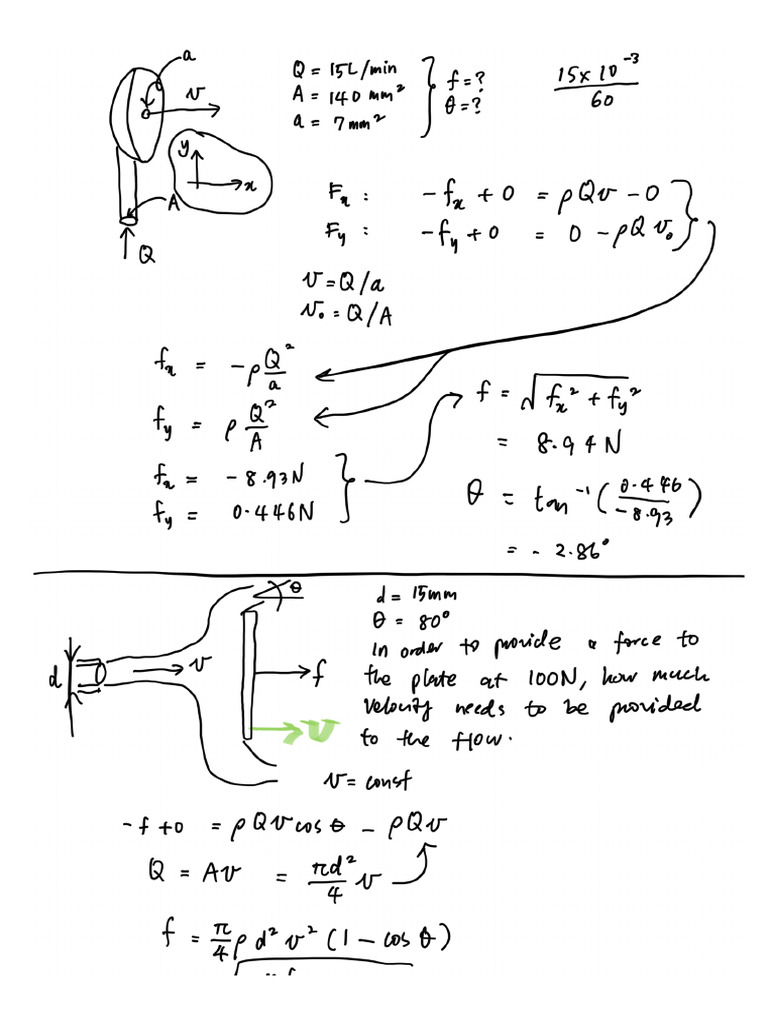 a
v
y
x
A
Q
Q = 15L/min
A = 140 mm²
a = 7mm²
f = ?
θ = ?
15×10⁻³
60
Fₓ : -fₓ + 0 = ρQv - 0
Fᵧ : -fᵧ + 0 = 0 - ρQv₀
v = Q/a
v₀ = Q/A
fₓ = -ρ Q²/a
fᵧ = ρ Q²/A
fₓ = -8.93N
fᵧ = 0.446N
f = √(fₓ² + fᵧ²)
= 8.94N
θ = tan⁻¹(0.446/-8.93)
= -2.86°
θ
d
v
f
v
d = 15mm
θ = 80°
In order to provide a force to
the plate at 100N, how much
velocity needs to be provided
to the flow.
v = const
-f + 0 = ρQv cos θ - ρQv
Q = Av = πd²/4 v
f = π/4 ρ d² v² (1 - cos θ)